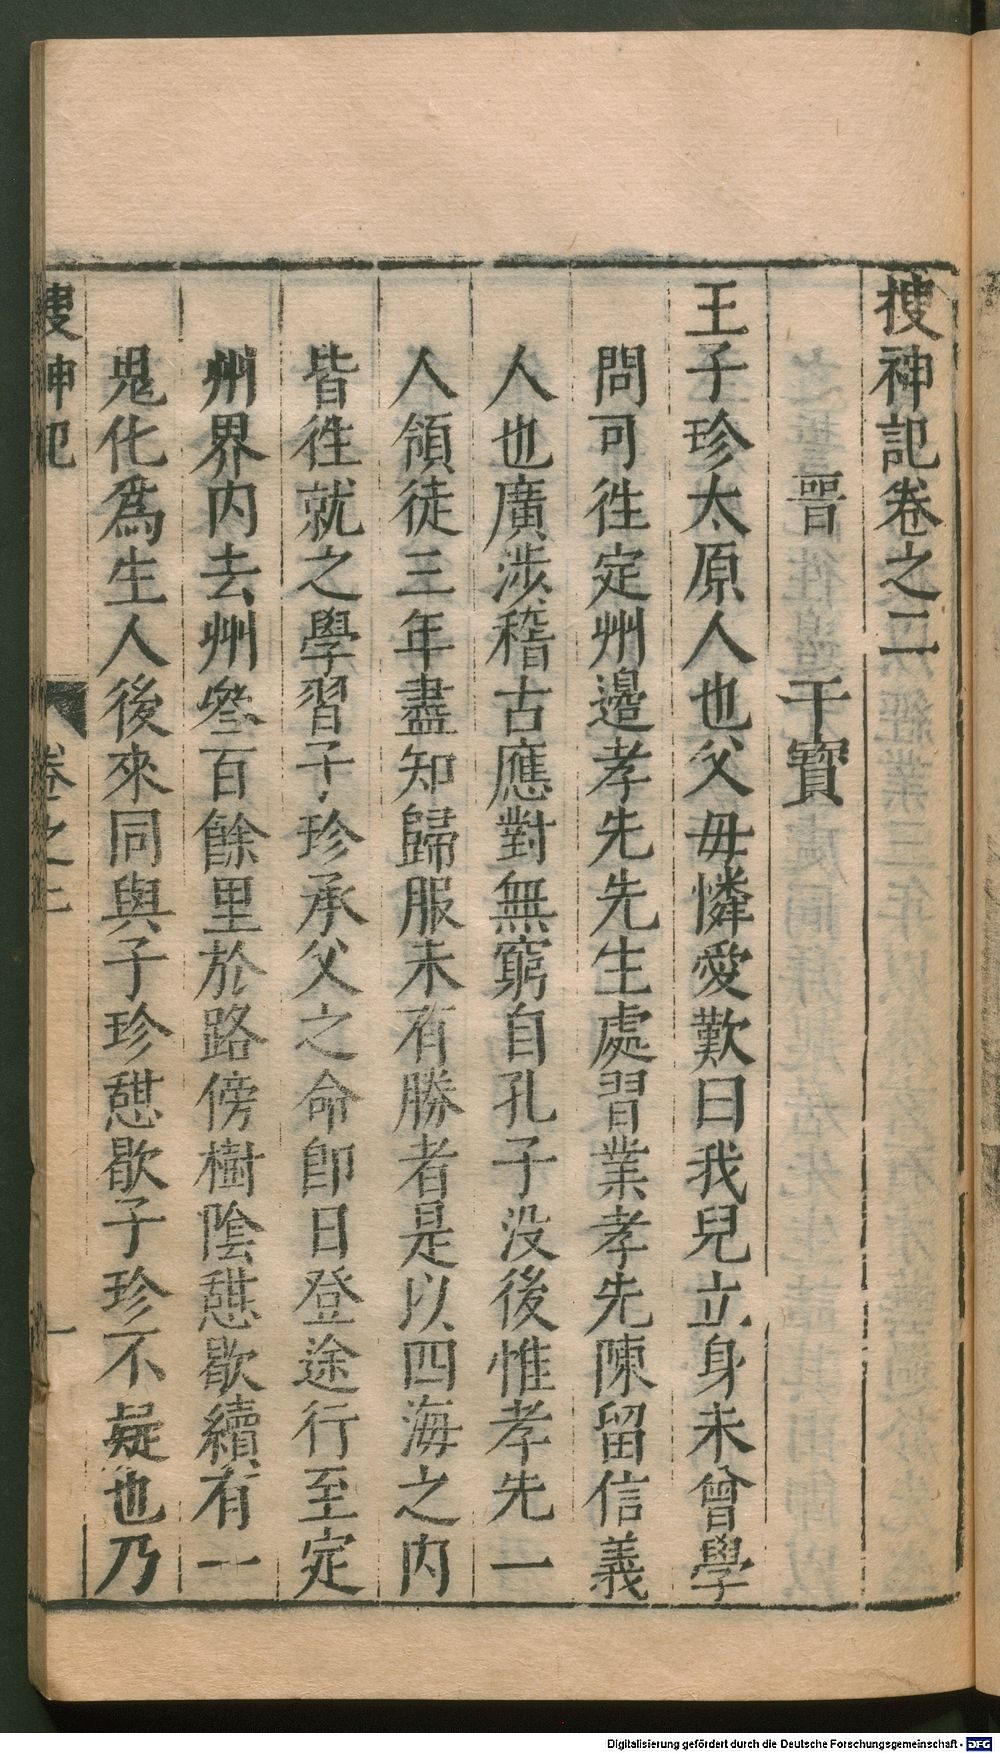 搜神記卷之二
晉 干寶
王子珍太原人也父毋憐愛歎曰我兒立身未曾學
問可徃定州邉孝先先生處習業孝先陳留信義
人也廣涉稽古應對無窮自孔子没後惟孝先一
人領徒三年盡知歸服未有勝者是以四海之内
皆徃就之學習子珍承父之命即日登途行至定
州界内去州叁百餘里於路傍樹陰憇歇續有一
鬼化爲生人後來同與子珍憇歇子珍不疑也乃
搜神記 卷之二 一
Digitalisierung gefördert durch die Deutsche Forschungsgemeinschaft - DFG